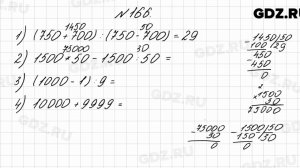 №166
GDZ.RU
1450 50
1) (750 + 700) : (750 - 700) = 29
75000 30
2) 1500 · 50 - 1500 : 50 =
3) (1000 - 1) · 9 =
4) 10000 + 9999 =
- 1450 | 50
100 | 29
- 450
450
0
2
× 1500
50
75000
- 75000
30
0
- 1500 | 50
150 | 30
0
GDZ.RU
GDZ.RU